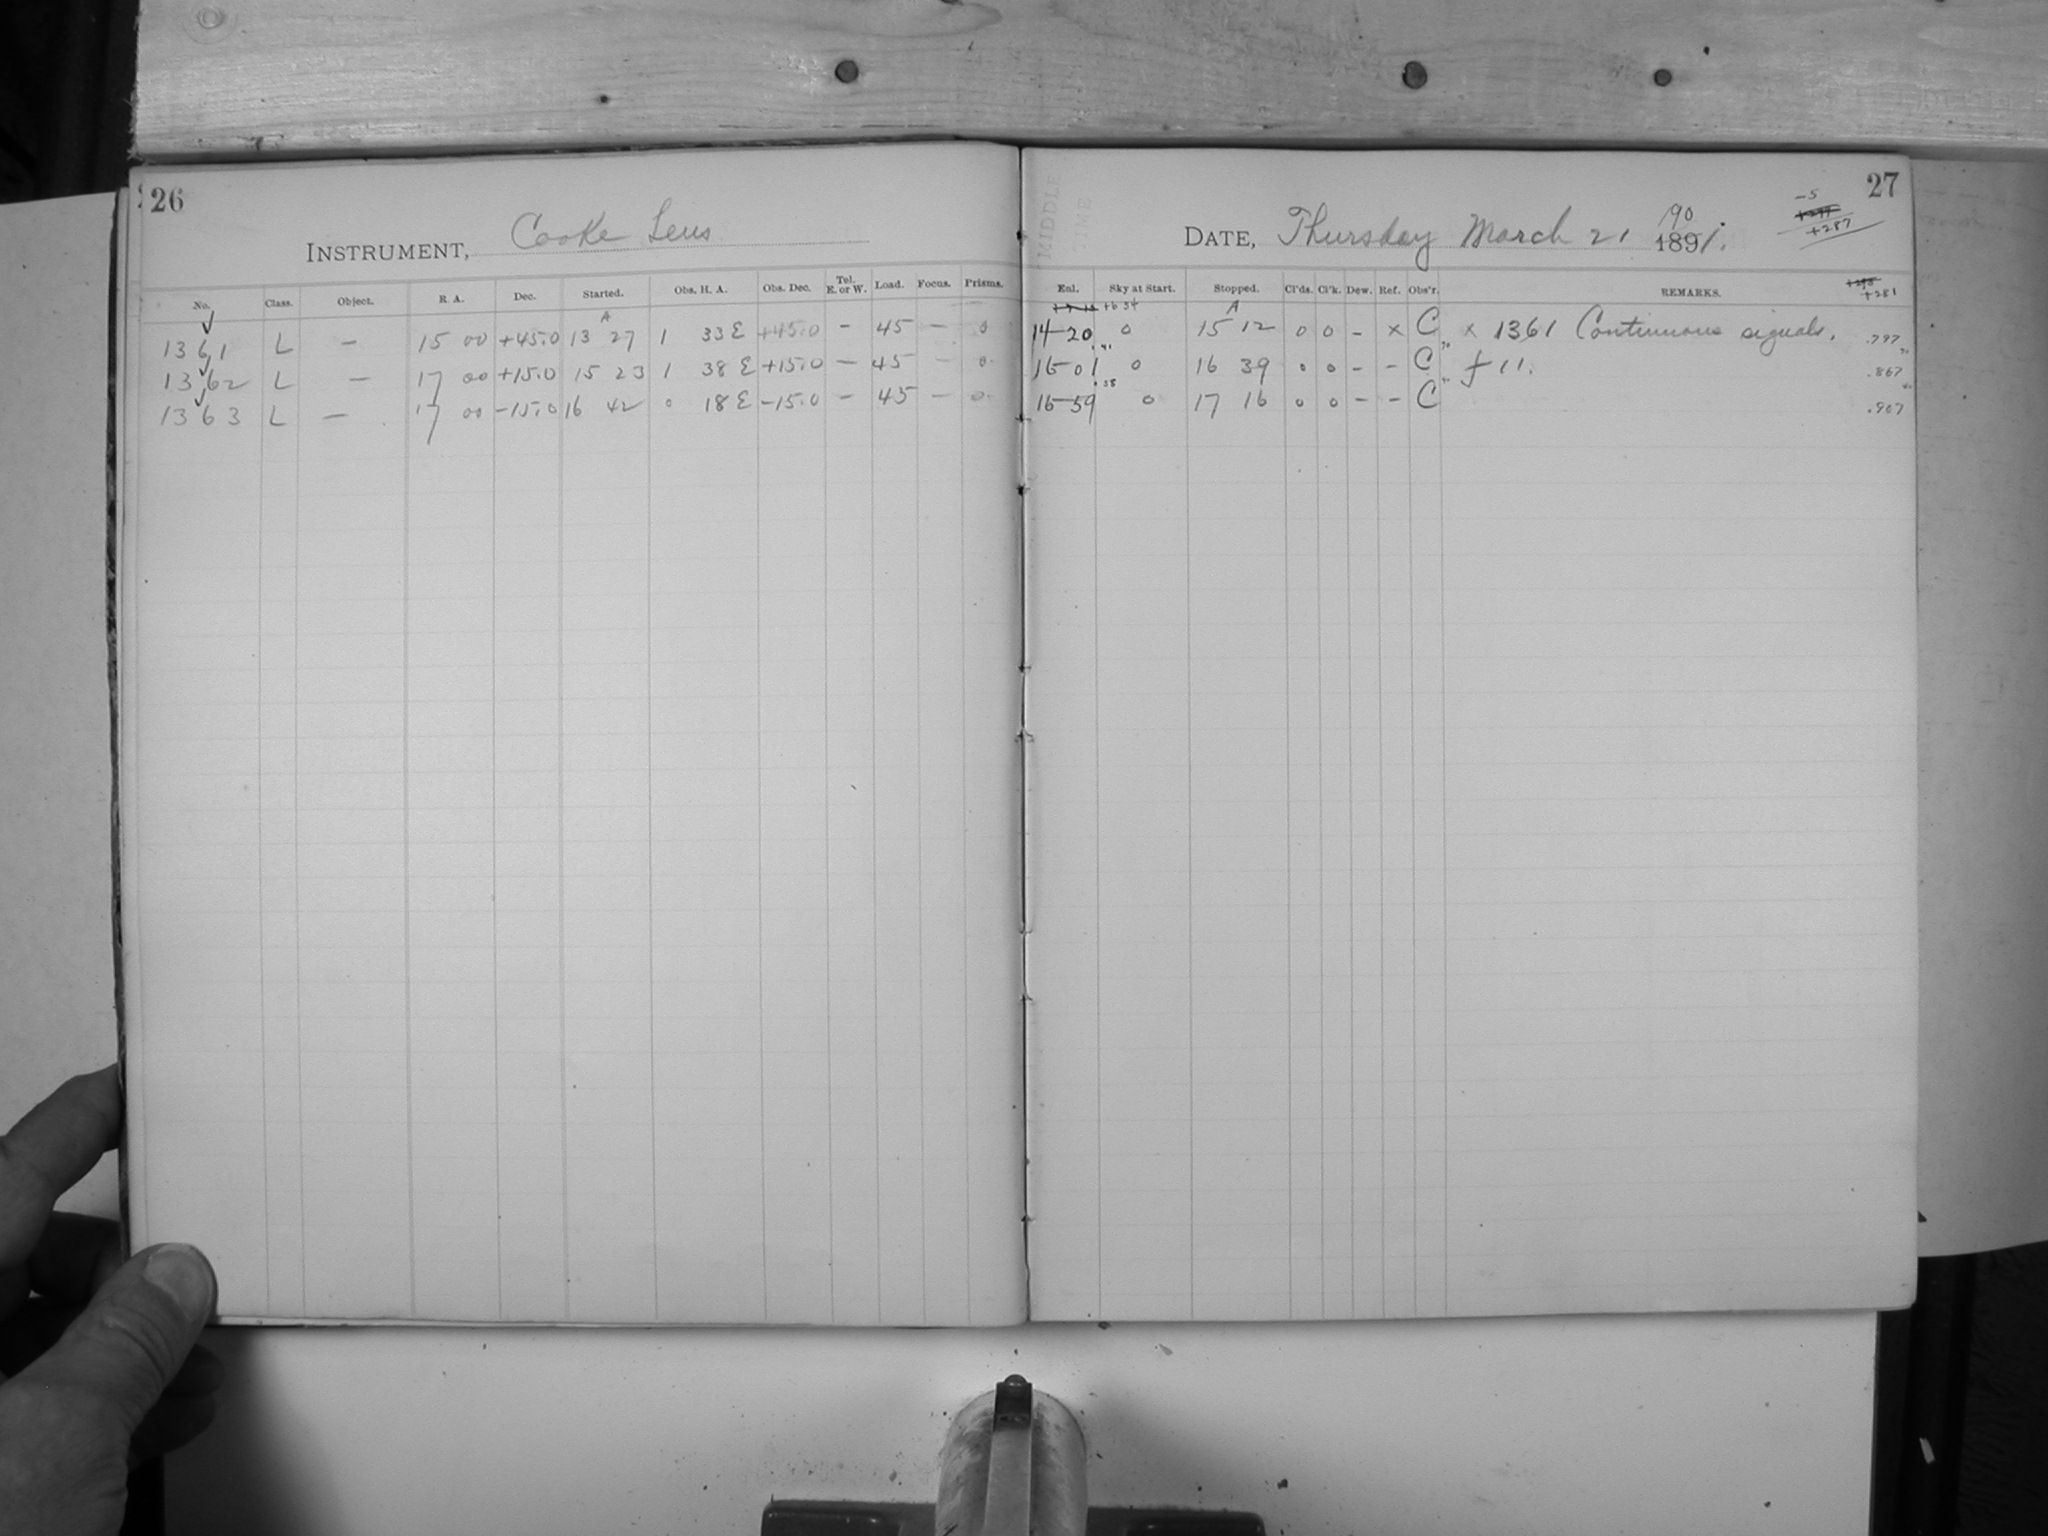 26
INSTRUMENT, Cooke Lens
No. Class. Object. R A. Dec. Started. Obs. H. A. Obs. Dec. Tel. E. or W. Load. Focus. Prisms.
A
1361 L — 15 00 +45.0 13 27 1 33 E +45.0 — 45 — 0
1362 L — 17 00 +15.0 15 23 1 38 E +15.0 — 45 — 0
1363 L — 17 00 -15.0 16 42 0 18 E -15.0 — 45 — 0
27
MIDDLE
TIME
-5
+287
DATE, Thursday March 21 1901.
+281
Enl. Sky at Start. Stopped. Cl'ds. Cl'k. Dew. Ref. Obs'r. REMARKS.
+6 54
A
14 20 0 15 12 0 0 - x C x 1361 Continuous signals. .797
16 01 0 16 39 0 0 - - C f 11. .867
16 59 0 17 16 0 0 - - C .907